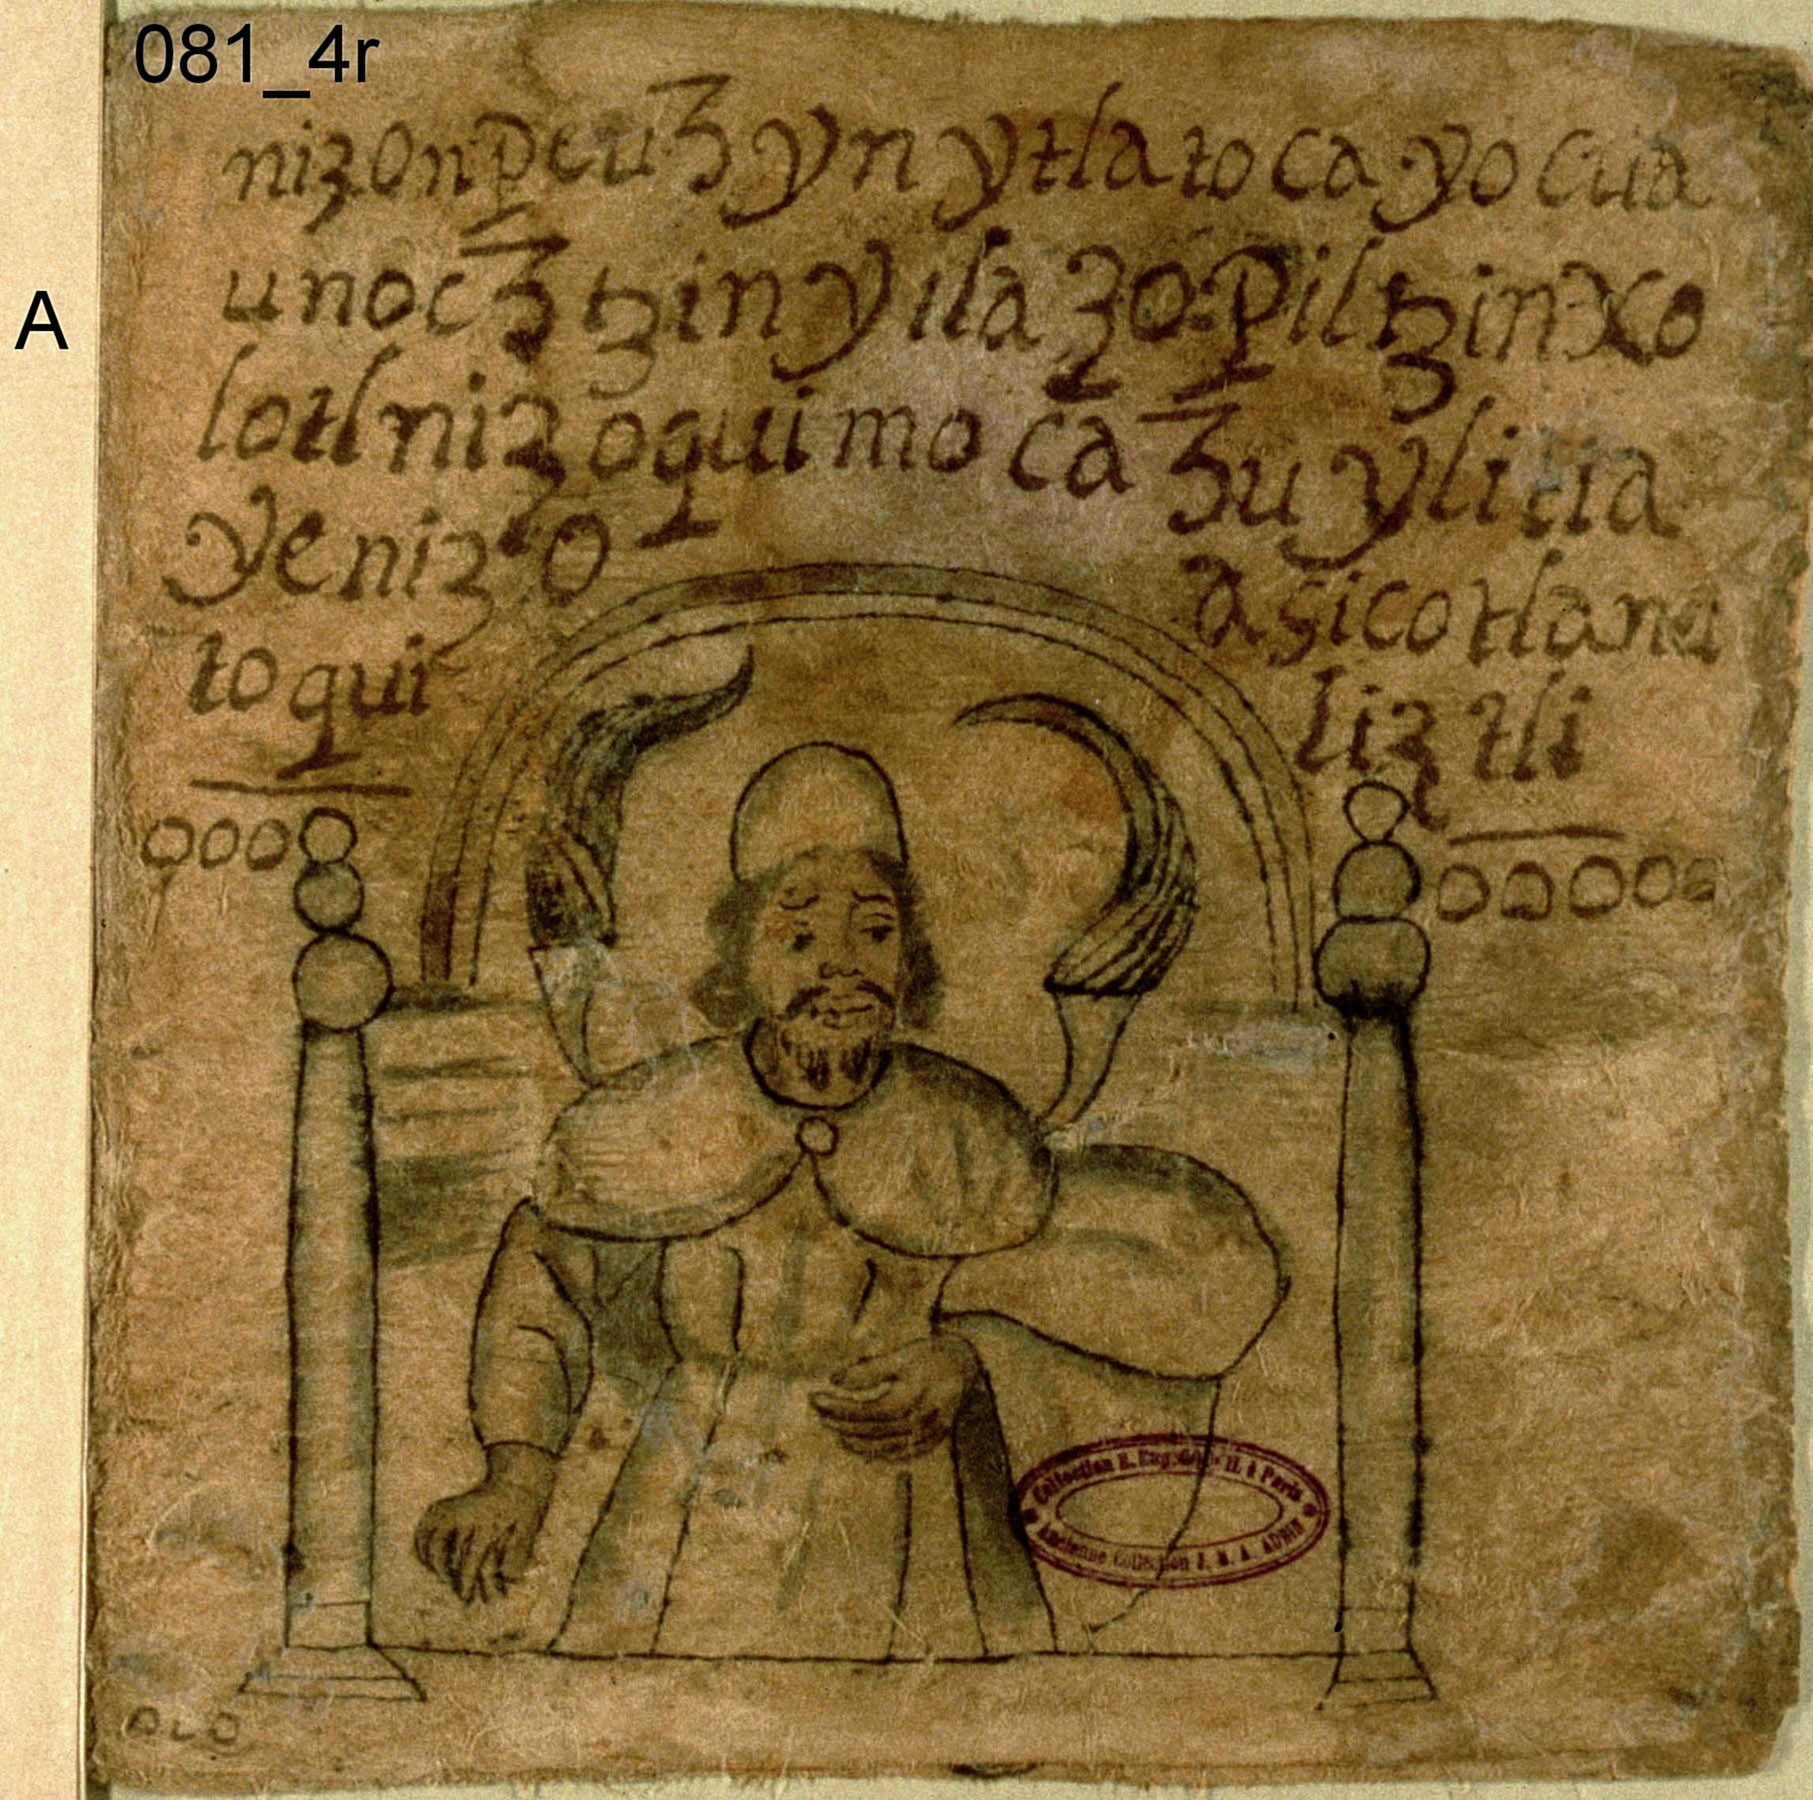 081_4r
A
nizonpeuhyn ytlatoca yocua
unoc tzin yila zo piltzin xo
lotl niz oqui mo ca hu ylitia
ye niz o
a sico tlane
to qui
liz tli
ooo
ooooo
Collection E. Eug. Goupil à Paris
Ancienne Collection J. M. A. AUBIN